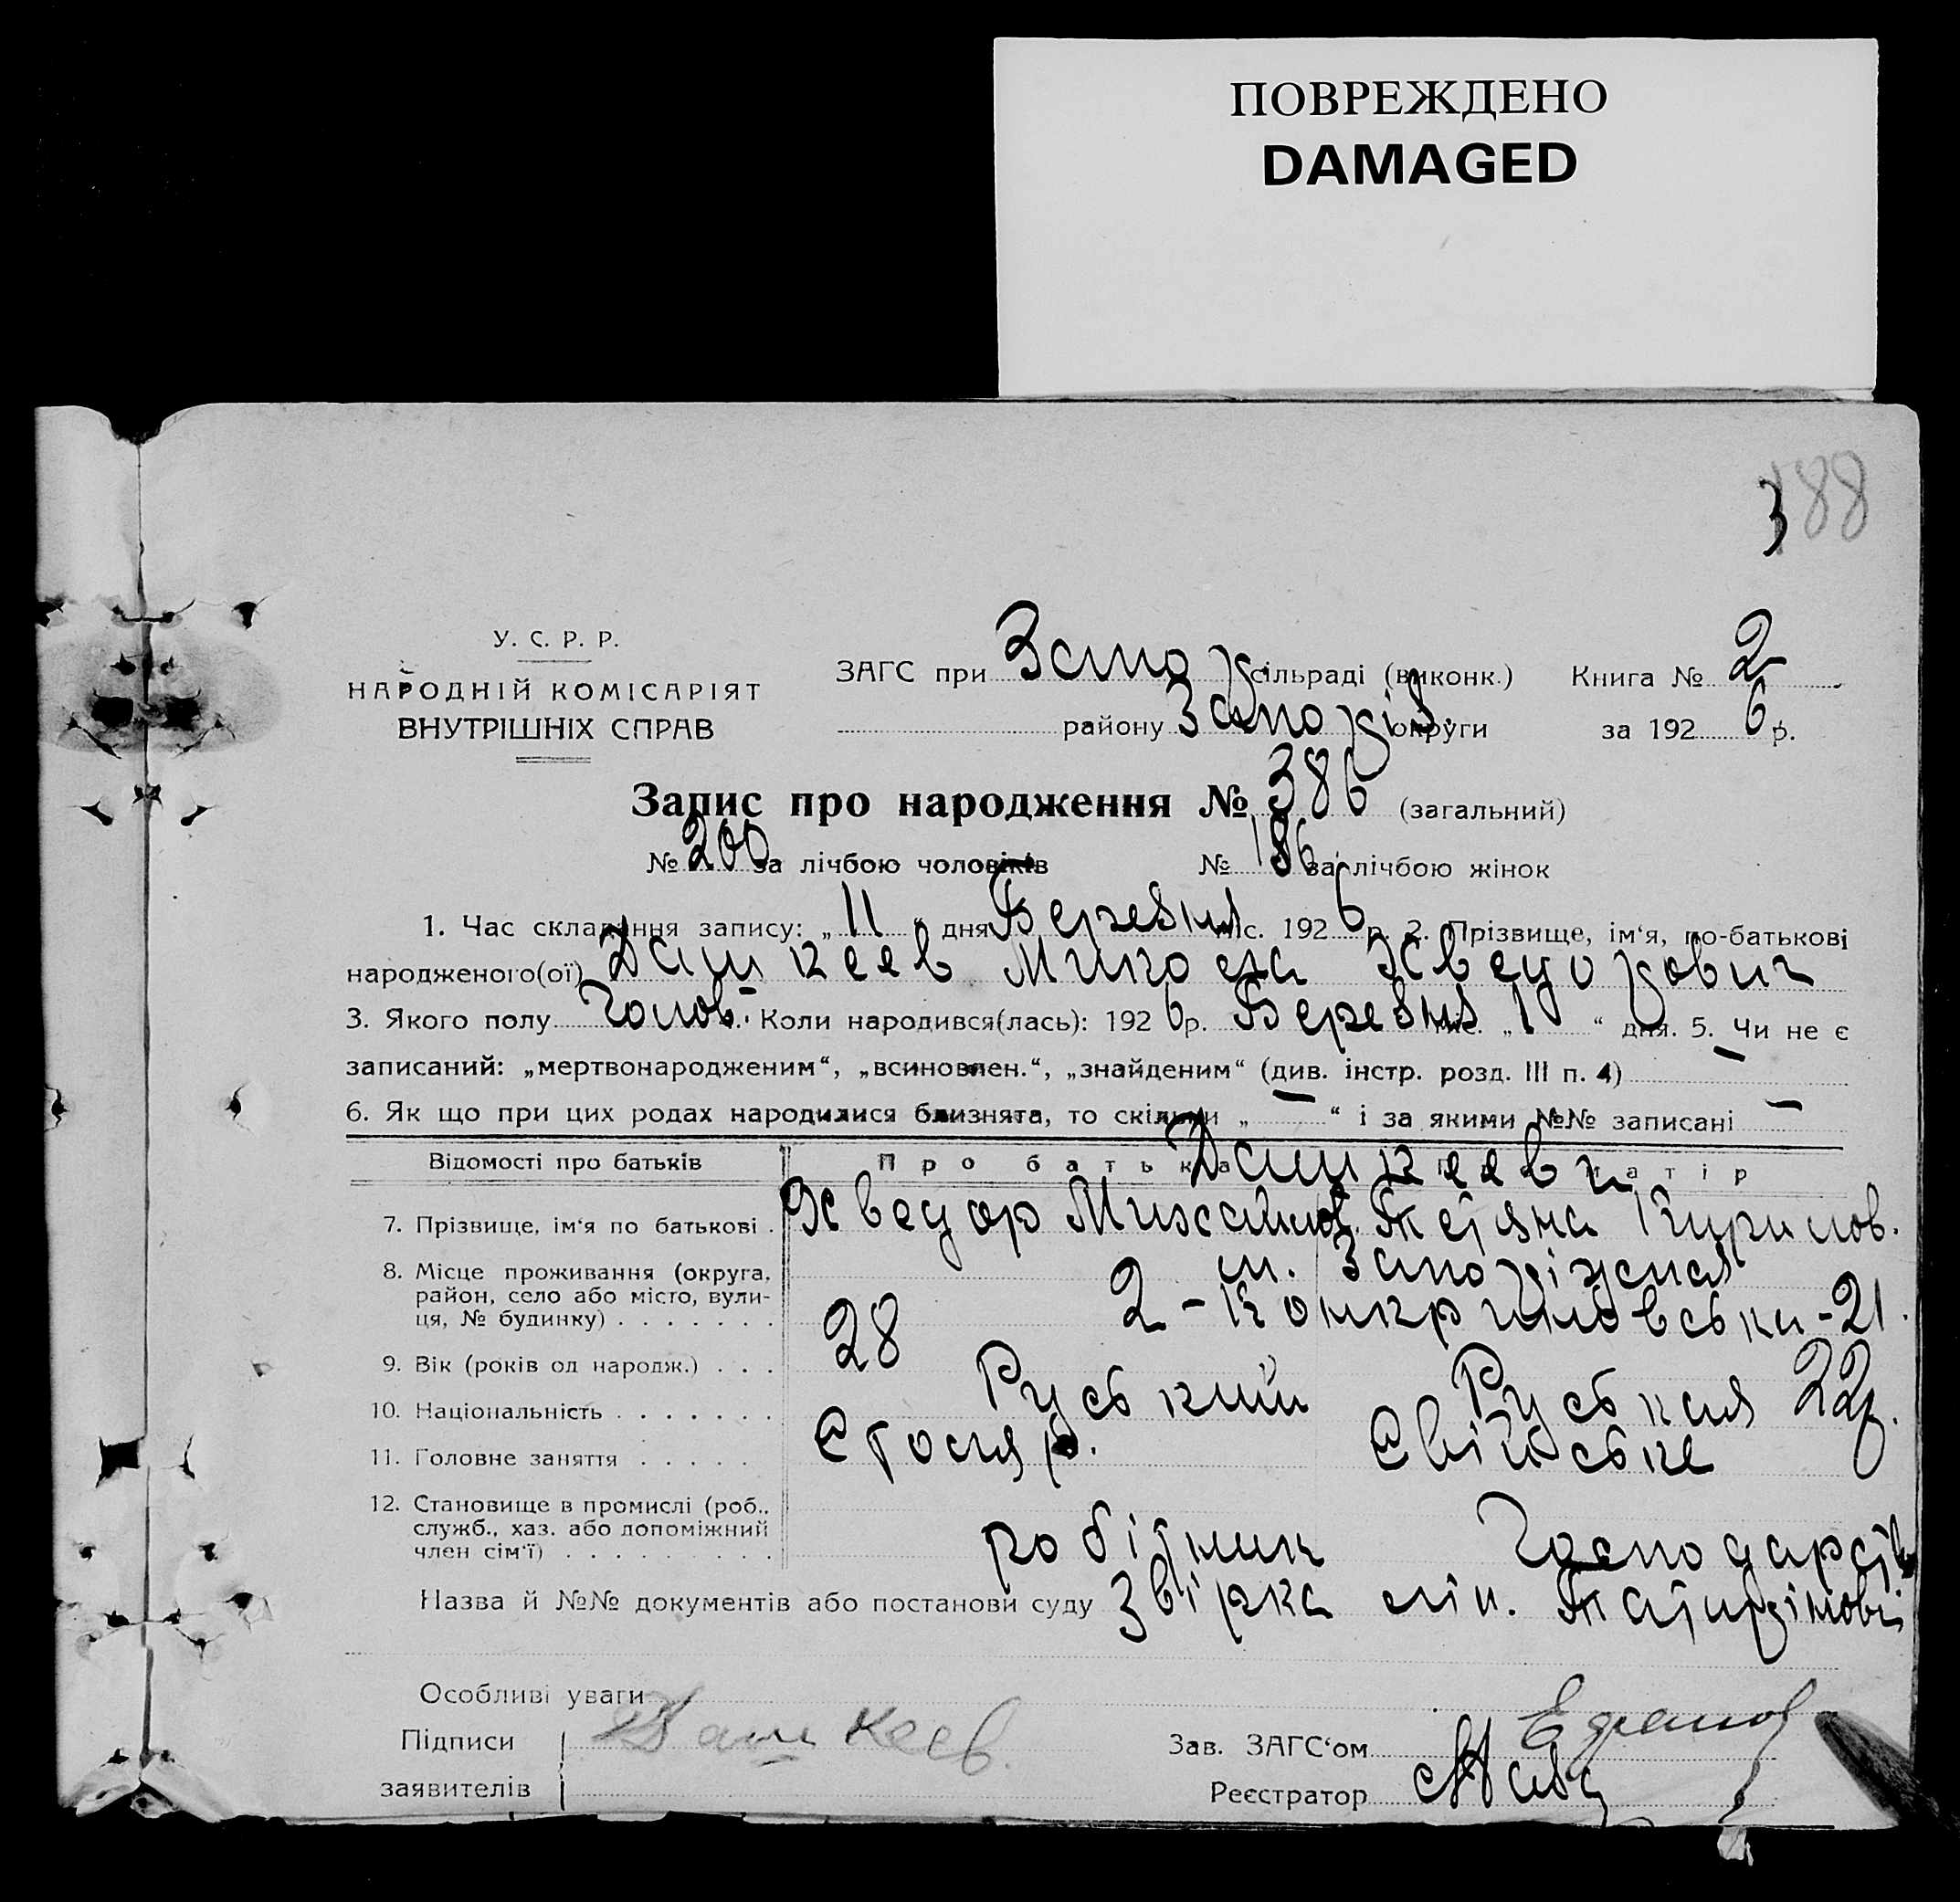 ПОВРЕЖДЕНО
DAMAGED
388
У. С. Р. Р.
НАРОДНІЙ КОМІСАРІЯТ
ВНУТРІШНІХ СПРАВ
ЗАГС при Запор сільраді (виконк.) Книга № 2
району Запоріз. округи за 1926 р.
Запис про народження № 386 (загальний)
№ 200 за лічбою чоловіків № 186 за лічбою жінок
1. Час складання запису: „11“ дня Березня міс. 1926 р. 2. Прізвище, ім‘я, по-батькові
народженого(ої) Дашкеев Микола Хведорович
3. Якого полу Чолов. Коли народився(лась): 1926 р. Березня міс. „1“ дня. 5. Чи не є
записаний: „мертвонародженим“, „всиновлен.“, „знайденим“ (див. інстр. розд. III п. 4) —
6. Як що при цих родах народилися близнята, то скільки „—“ і за якими №№ записані —
Відомості про батьків Про батька матір
Дашкееви
7. Прізвище, ім‘я по батькові . Хведор Михайлов. Тетяна Кирилов.
8. Місце проживання (округа, район, село або місто, вулиця, № будинку) . . . . . . . м. Запоріжжя
2 - -21.
9. Вік (років од народж.) . . . 28 22р.
10. Національність . . . . . . . Руський Руськая
11. Головне заняття . . . . . Столяр.
12. Становище в промислі (роб.,
служб., хаз. або допоміжний
член сім‘ї) . . . . . . . . . робітник
Назва й №№ документів або постанови суду Звірка
Особливі уваги
Підписи Дашкеев. Зав. ЗАГС‘ом
заявителів Реєстратор